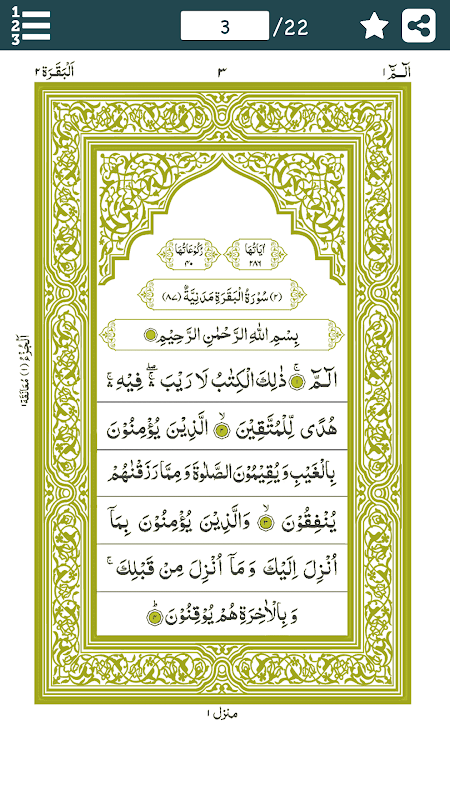 1
2
3
3 /22
الٓـمّٓ ١
٣
اَلْبَقَرَة ٢
اٰيَاتُهَا
٢٨٦
رُكُوْعَاتُهَا
۴٠
(٢) سُوْرَةُ الْبَقَرَةِ مَدَنِيَّةٌ (٨٧)
بِسْمِ اللّٰهِ الرَّحْمٰنِ الرَّحِيْمِ
الٓمّٓ ۚ ۝١ ذٰلِكَ الْكِتٰبُ لَا رَيْبَ ۛۖ ۚ فِيْهِ ۛۚ
هُدًى لِّلْمُتَّقِيْنَ ۙ ۝٢ الَّذِيْنَ يُؤْمِنُوْنَ
بِالْغَيْبِ وَيُقِيْمُوْنَ الصَّلٰوةَ وَمِمَّا رَزَقْنٰهُمْ
يُنْفِقُوْنَ ۙ ۝٣ وَالَّذِيْنَ يُؤْمِنُوْنَ بِمَآ
اُنْزِلَ اِلَيْكَ وَمَآ اُنْزِلَ مِنْ قَبْلِكَ ۚ
وَبِالْاٰخِرَةِ هُمْ يُوْقِنُوْنَ ؕ ۝۴
اَلْجُزْءُ (١) مُعَانَقَة ١
منزل ١